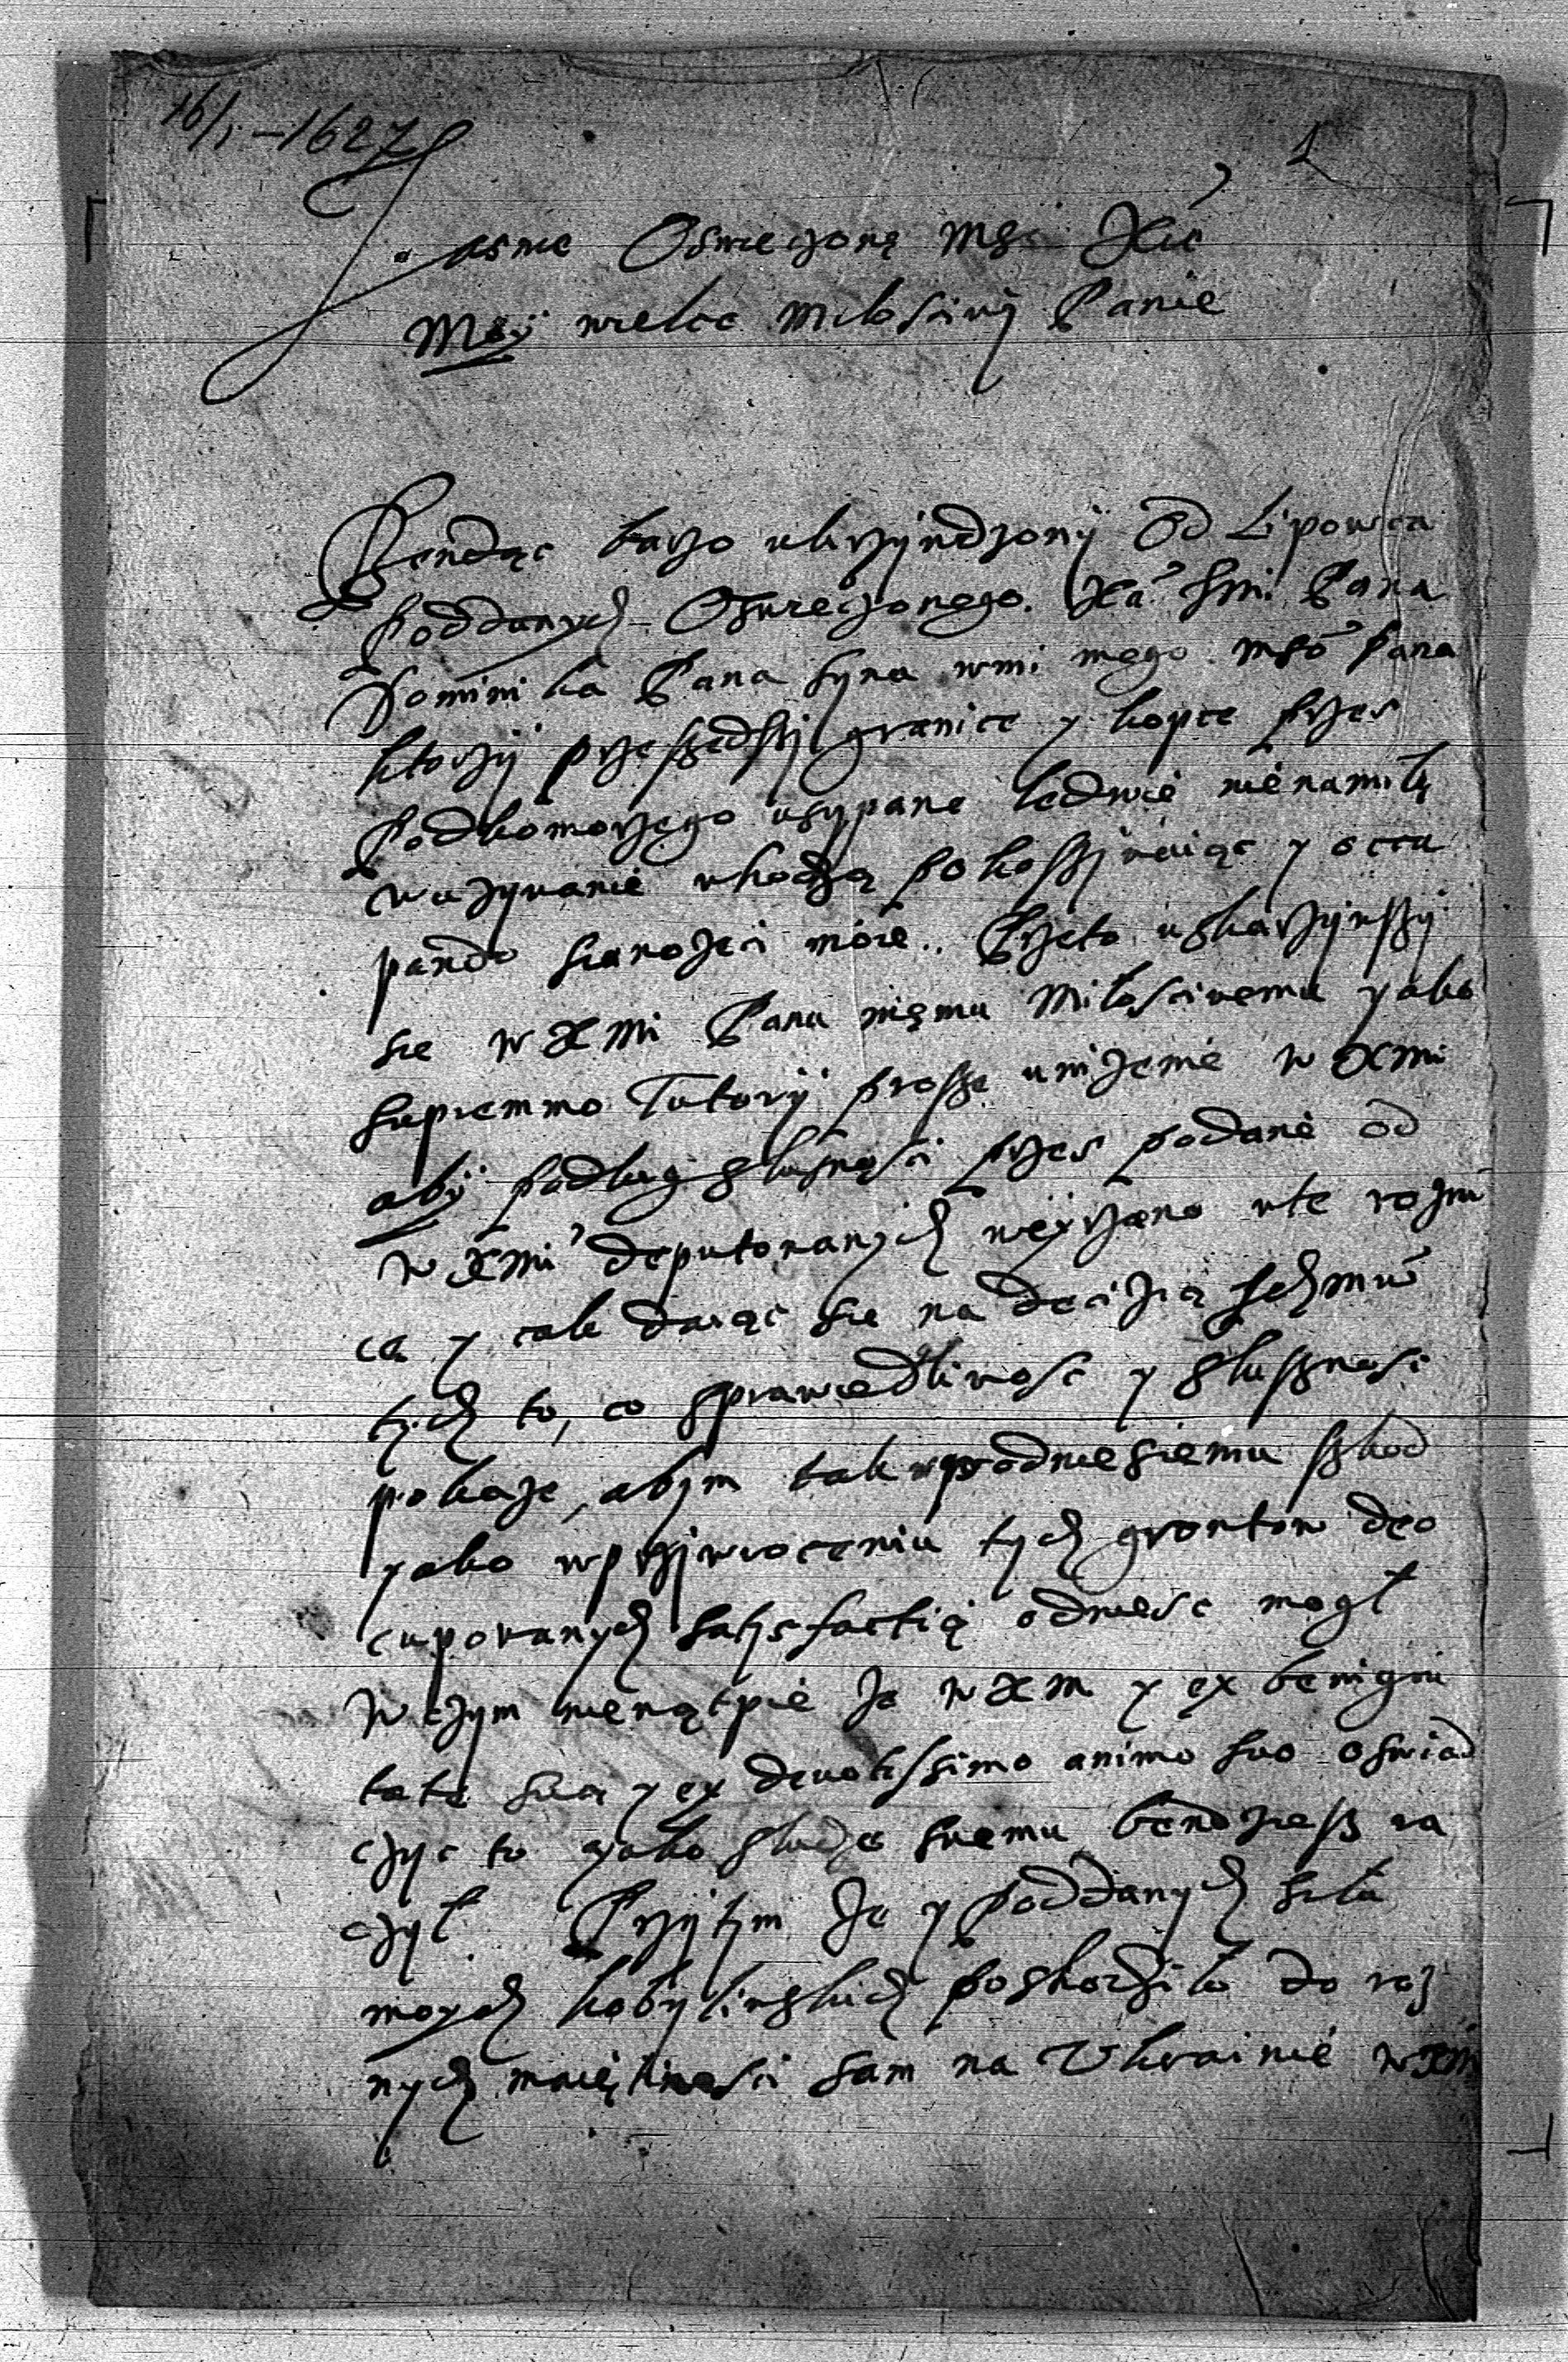 16/1 – 1627
1
Jasnie Oswieczoną Msci Xże
Moÿ wielce Milosciwÿ Panie
Bendąc barzo ukrzÿwdzonÿ Od Lipowca
Poddanych Oswieczonego Xa Jmi Pana
Dominika Pana syna wmi mego mso Pana
ktorzÿ przeszedszÿ granice y kopce przes
Podkomorzego usypane ledwie nie na milę
w uzywanie whodzą pokoszÿwaiąc y occu
pando sianozeci moie. Przeto uskarzÿwszÿ
sie w X mi Panu memu Milosciwemu yako
supremmo Tutorÿ prosze unizenie w X mi
abÿ podlug slusnosci przes podane od
w X mi deputowanych weÿrzano w te rozni
ce y cale daiąc sie na decizią ich mw
tych to, co sprawiedliwosc y slusznosc
pokaze, abym tak w podniesieniu szkod
yako w przÿwroceniu tych grontow oc
cupowanych satysfactią odniesc mogł
W czym nie wątpie ze w X m y ex benigni
tate sua y ex devotissimo animo suo oswiad
czyc to yako sludze swemu bendziesz ra
czył Przÿtym ze y poddanych siła
moych kobylinskich poskodziło do roz
nych maiętnosci sam na Ukrainie w X m